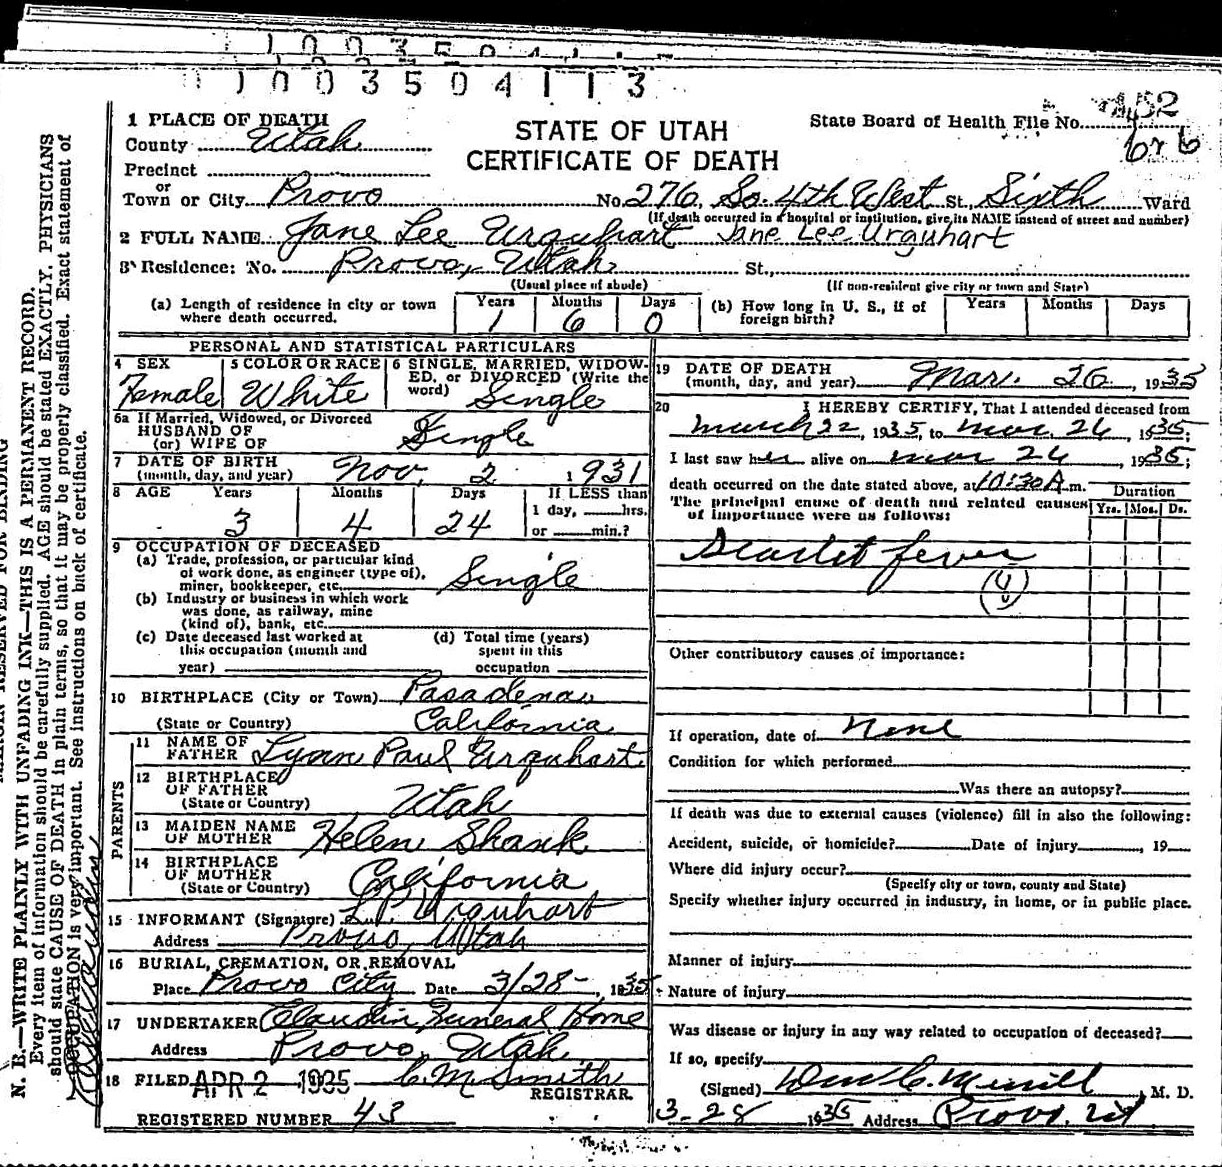 1003504113
1 PLACE OF DEATH
County Utah
Precinct
or
Town or City Provo
STATE OF UTAH
CERTIFICATE OF DEATH
State Board of Health File No. 152
No. 276 So. 4th West St. Sixth Ward
(If death occurred in a hospital or institution, give its NAME instead of street and number)
2 FULL NAME Jane Lee Urquhart Jane Lee Urquhart
3 Residence: No. Provo, Utah St.,
(Usual place of abode) (If non-resident give city or town and State)
(a) Length of residence in city or town where death occurred. Years 1 Months 6 Days 0
(b) How long in U. S., if of foreign birth? Years Months Days
PERSONAL AND STATISTICAL PARTICULARS
4 SEX Female
5 COLOR OR RACE White
6 SINGLE, MARRIED, WIDOWED, or DIVORCED (Write the word) Single
6a If Married, Widowed, or Divorced
HUSBAND OF
(or) WIFE OF Single
7 DATE OF BIRTH
(month, day, and year) Nov. 2 1931
8 AGE Years 3 Months 4 Days 24 If LESS than
1 day, hrs.
or min.?
9 OCCUPATION OF DECEASED
(a) Trade, profession, or particular kind
of work done, as engineer (type of),
miner, bookkeeper, etc. Single
(b) Industry or business in which work
was done, as railway, mine
(kind of), bank, etc.
(c) Date deceased last worked at
this occupation (month and
year)
(d) Total time (years)
spent in this
occupation
10 BIRTHPLACE (City or Town) Pasadena
(State or Country) California
PARENTS
11 NAME OF
FATHER Lynn Paul Urquhart
12 BIRTHPLACE
OF FATHER
(State or Country) Utah
13 MAIDEN NAME
OF MOTHER Helen Shank
14 BIRTHPLACE
OF MOTHER
(State or Country) California
15 INFORMANT (Signature) L.P. Urquhart
Address Provo, Utah
16 BURIAL, CREMATION, OR REMOVAL
Place Provo City Date 3/28-, 1935
17 UNDERTAKER Claudin Funeral Home
Address Provo, Utah
18 FILED APR 2 1935 C.M. Smith
REGISTRAR
REGISTERED NUMBER 43
19 DATE OF DEATH
(month, day, and year) Mar. 26, 1935
20 I HEREBY CERTIFY, That I attended deceased from
March 22, 1935, to Mar. 26, 1935;
I last saw her alive on Mar 26, 1935;
death occurred on the date stated above, at 10:30 A m.
The principal cause of death and related causes
of importance were as follows:
Duration
Yrs. Mos. Ds.
Scarlet fever
Other contributory causes of importance:
If operation, date of None
Condition for which performed
Was there an autopsy?
If death was due to external causes (violence) fill in also the following:
Accident, suicide, or homicide? Date of injury, 19
Where did injury occur?
(Specify city or town, county and State)
Specify whether injury occurred in industry, in home, or in public place.
Manner of injury
Nature of injury
Was disease or injury in any way related to occupation of deceased?
If so, specify
(Signed) C. Merrill, M. D.
3-28 1935 Address Provo, Ut
N. B.—WRITE PLAINLY WITH UNFADING INK—THIS IS A PERMANENT RECORD.
Every item of information should be carefully supplied. AGE should be stated EXACTLY. PHYSICIANS
should state CAUSE OF DEATH in plain terms, so that it may be properly classified. Exact statement of
OCCUPATION is very important. See instructions on back of certificate.